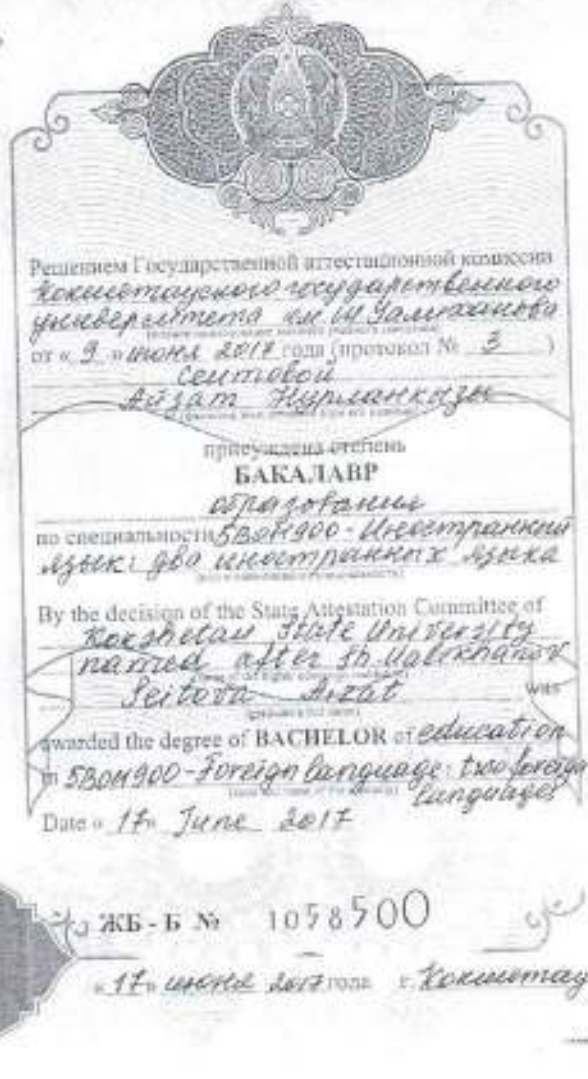 Решением Государственной аттестационной комиссии
Кокшетауского государственного
университета им. Ш Уалиханова
от « 9 » июня 2017 года (протокол № 3 )
Сеитовой
Айзат Нурланкызы
присуждена степень
БАКАЛАВР
образования
по специальности 5В011900 - Иностранный
язык: два иностранных языка
By the decision of the State Attestation Committee of
Kokshetau State University
named after Sh. Ualikhanov
Seitova Aizat was
awarded the degree of BACHELOR of education
in 5B011900 - Foreign language: two foreign
languages
Date « 17 » June 2017
ЖБ - Б № 1058500
« 17 » июня 2017 года г. Кокшетау